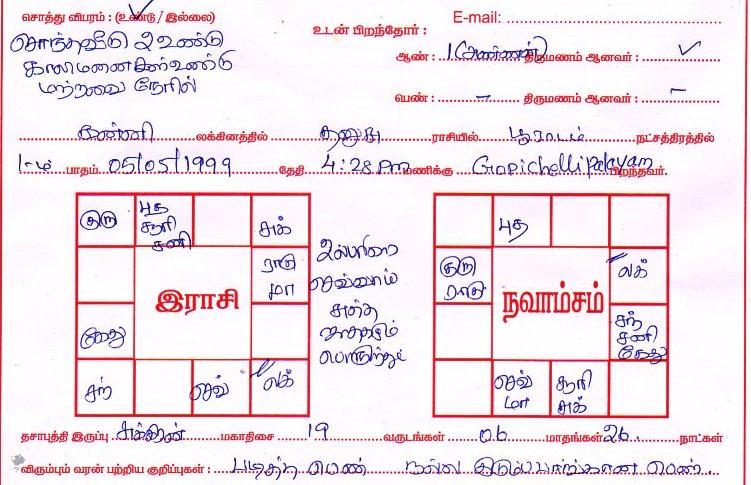 சொத்து விபரம் : (உண்டு / இல்லை)
E-mail:
சொந்தவீடு 2 உண்டு
உடன் பிறந்தோர் :
காலிமனைகள் உண்டு
ஆண் : 1 (அண்ணன்) திருமணம் ஆனவர் : ✓
மற்றவை நேரில்
பெண் : – திருமணம் ஆனவர் : –
கன்னி லக்கினத்தில் தனுசு ராசியில் பூராடம் நட்சத்திரத்தில்
1-ம் பாதம் 05/05/1999 தேதி 4:28 Pm மணிக்கு Gopichettipalayam பிறந்தவர்.
குரு
புத
சூரி
சனி
சுக்
ராகு
மா
இராசி
கேது
சந்
செவ்
லக்
செவ்வாய்
சுத்த
ஜாதகம்
பொருந்தும்
புத
குரு
ராகு
லக்
நவாம்சம்
சந்
சனி
கேது
செவ்
மா
சூரி
சுக்
தசாபுத்தி இருப்பு சுக்கிரன் மகாதிசை 19 வருடங்கள் 06 மாதங்கள் 26 நாட்கள்
விரும்பும் வரன் பற்றிய குறிப்புகள் : படித்த பெண் நல்ல குடும்பபாங்கான பெண்.